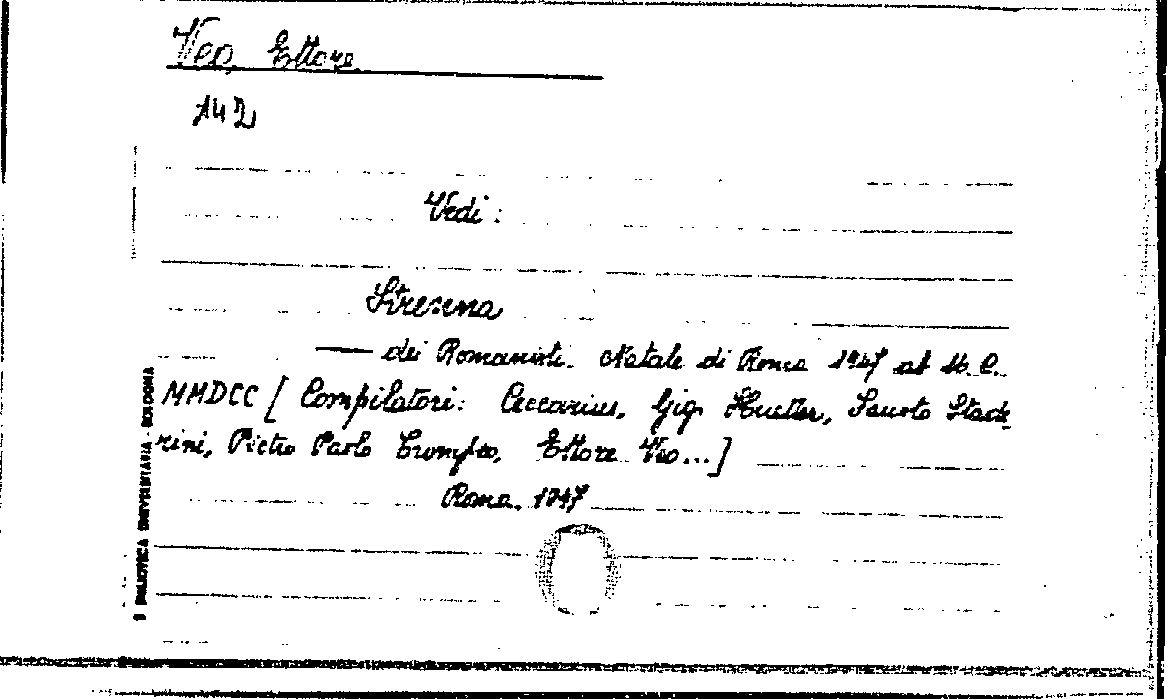 Veo, Ettore
142
Vedi:
Strenna
— dei Romanisti. Natale di Roma 1947 ab U.C.
MMDCC [Compilatori: Ceccarius, Gigi Huetter, Fausto Stade
rini, Pietro Paolo Trompeo, Ettore Veo...]
Roma, 1947
BIBLIOTECA UNIVERSITARIA - BOLOGNA